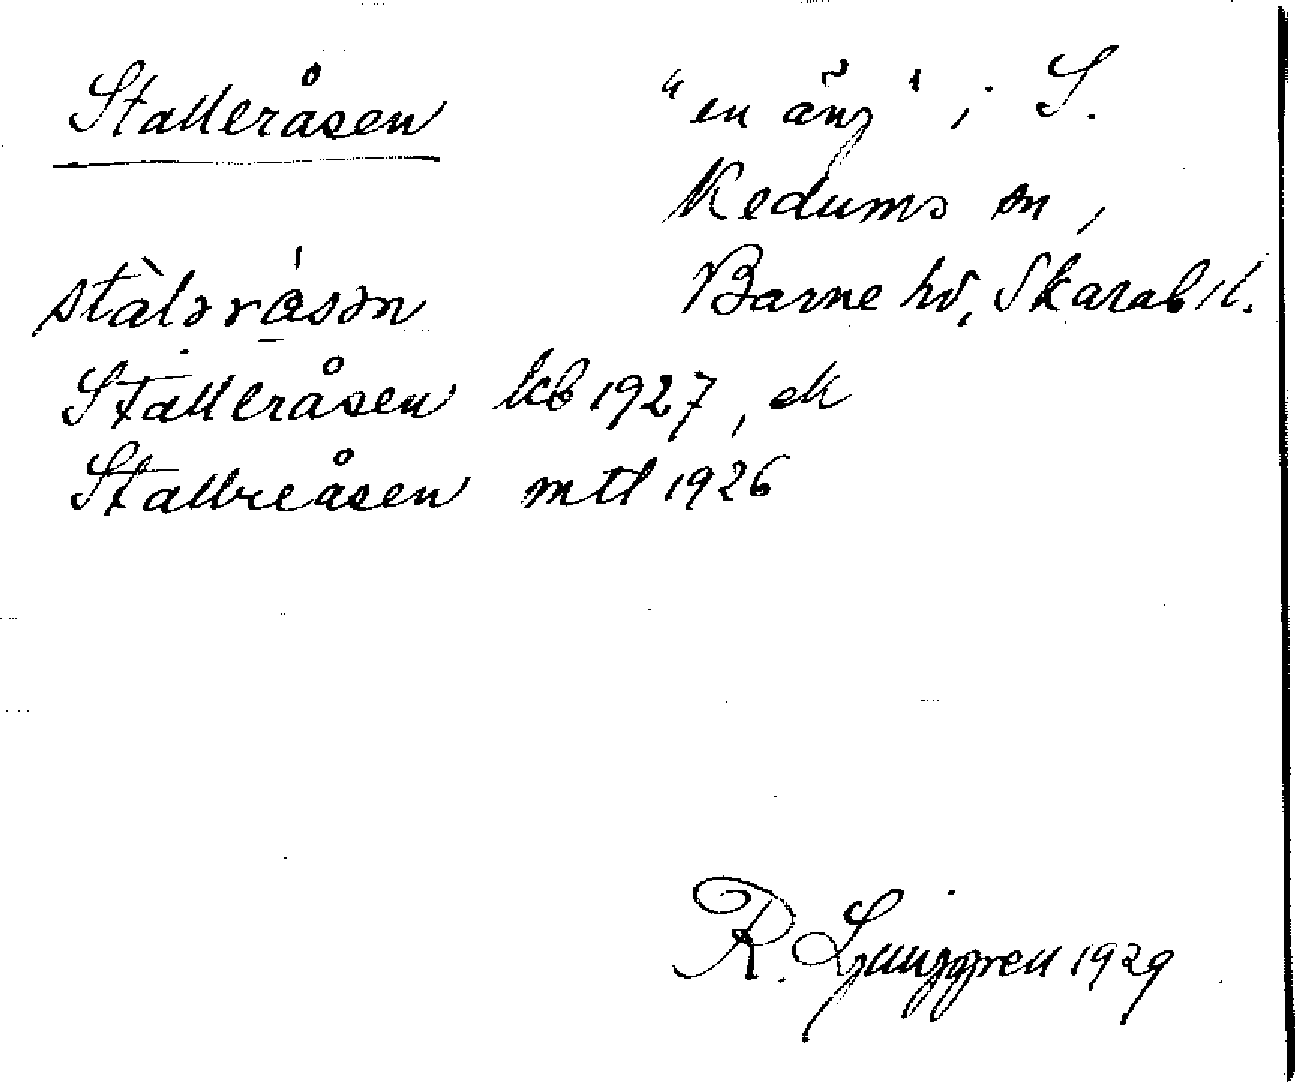 Stalleråsen
"en äng" i S.
Kedums sn,
Barne hd, Skarab. l.
stàləråsən
Stalleråsen kb 1927, ek
Stallreåsen mtl 1926
R. Ljunggren 1929